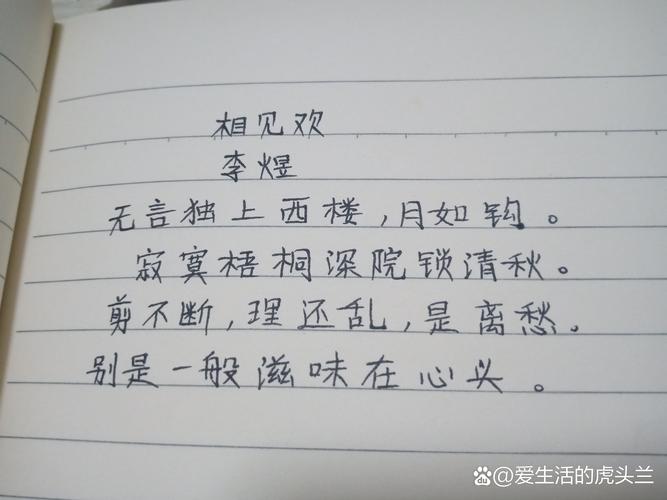 相见欢
李煜
无言独上西楼,月如钩。
寂寞梧桐深院锁清秋。
剪不断,理还乱,是离愁。
别是一般滋味在心头。
@爱生活的虎头兰